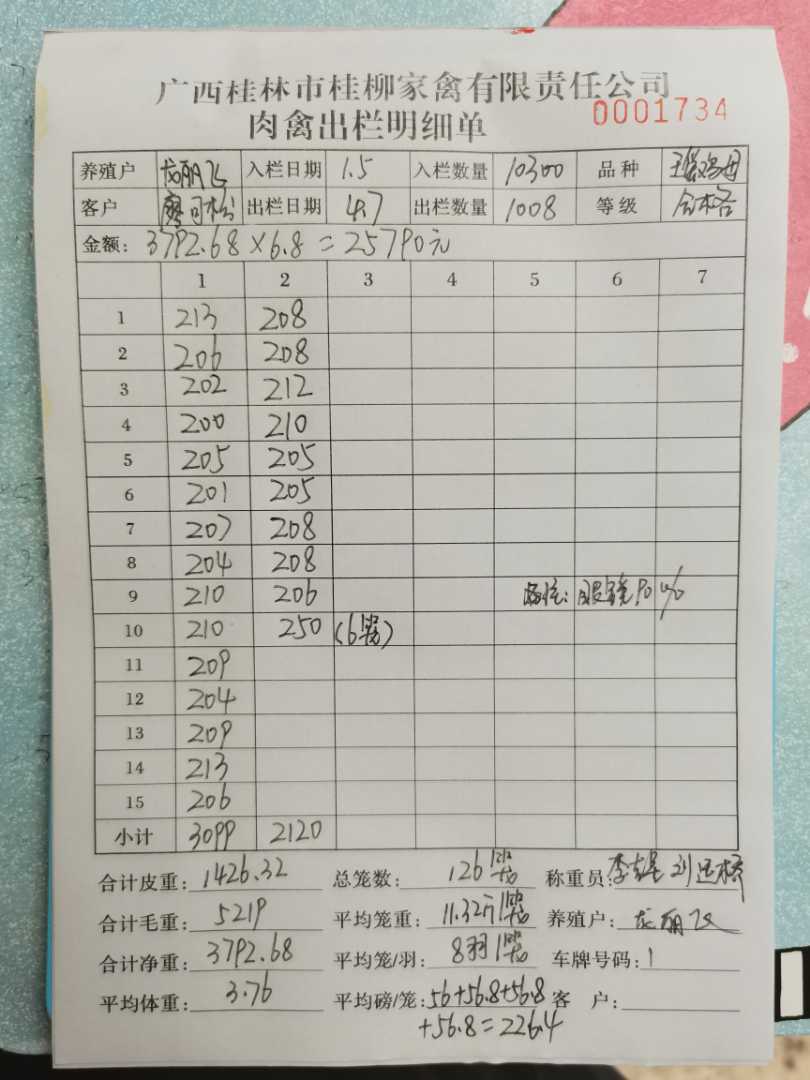 广西桂林市桂柳家禽有限责任公司
肉禽出栏明细单 0001734
养殖户 龙丽飞 入栏日期 1.5 入栏数量 10300 品种
客户 廖司松 出栏日期 4.7 出栏数量 1008 等级 合格
金额: 3792.68×6.8=25790元
1 2 3 4 5 6 7
1 213 208
2 206 208
3 202 212
4 200 210
5 205 205
6 201 205
7 207 208
8 204 208
9 210 206 备注: 眼镜90%
10 210 250 (6笼)
11 209
12 204
13 209
14 213
15 206
小计 3099 2120
合计皮重: 1426.32 总笼数: 126笼 称重员:
合计毛重: 5219 平均笼重: 11.32斤/笼 养殖户: 龙丽飞
合计净重: 3792.68 平均笼/羽: 8羽/笼 车牌号码:
平均体重: 3.76 平均磅/笼: 56+56.8+56.8 客 户:
+56.8=226.4